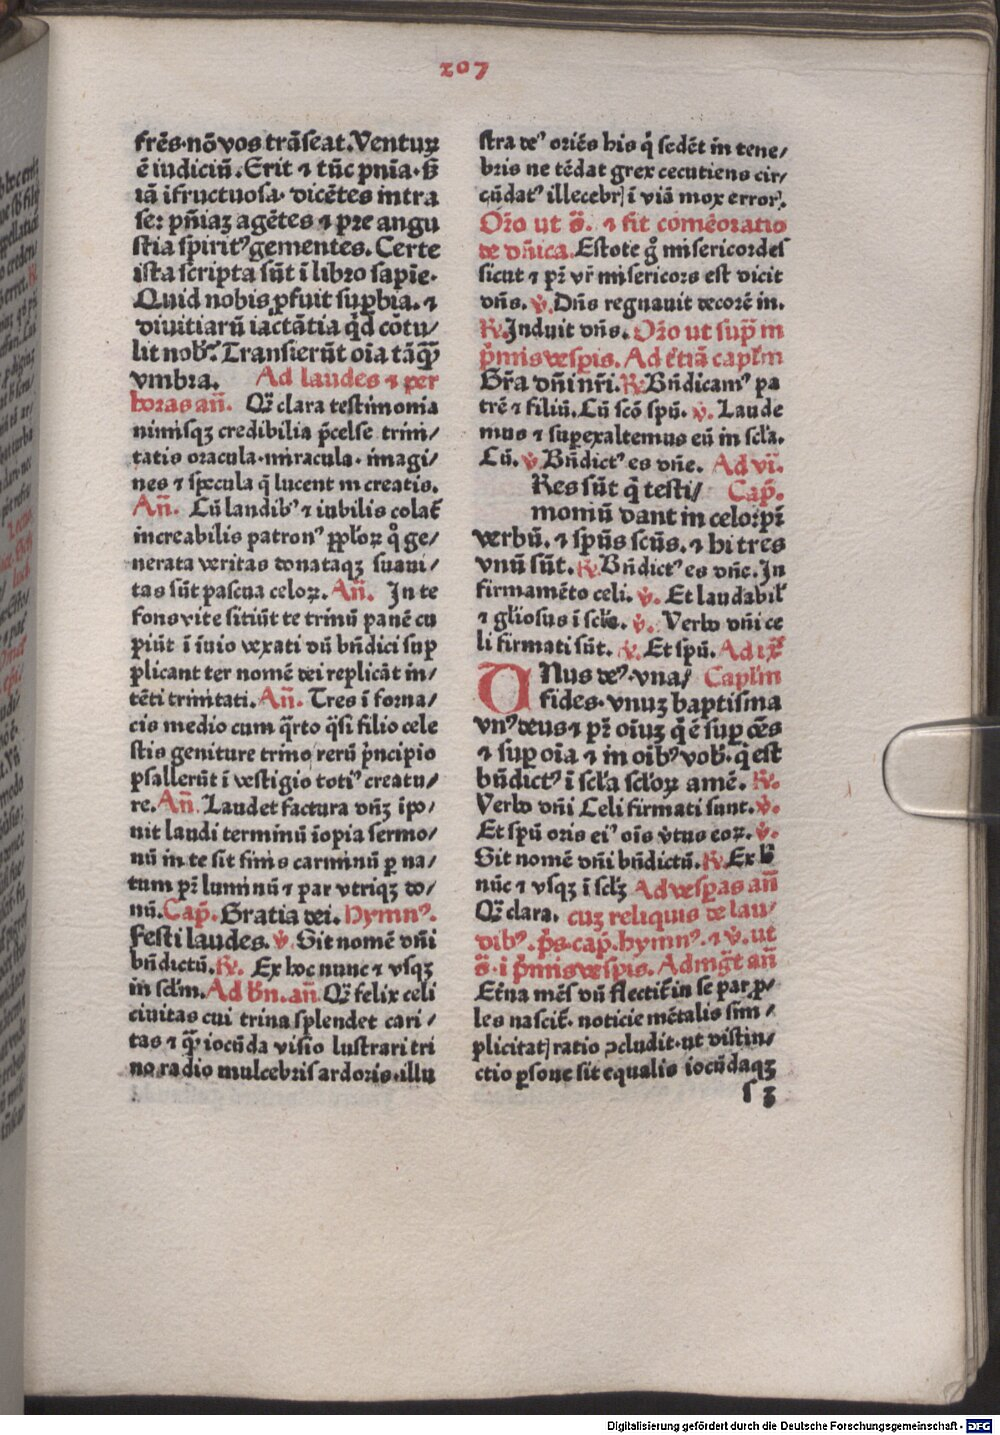 207
frēs·nō vos trāseat. Ventuꝝ
ē iudiciū. Erit ⁊ tūc pnīa· ß
iā ifructuosa· dicētes intra
se: pn̄iaꝫ agētes ⁊ pre angu
stia spirit᷒ gementes. Certe
ista scripta sūt ī libro sapīe·
Quid nobis ꝓfuit suꝑbia. ⁊
diuitiarū iactātia qd̄ cōtu/
lit nob᷒. Transierūt oīa tāꝙ̄
vmbra. Ad laudes ⁊ per
horas an̄. Q̄ clara testimonia
nimisqꝫ credibilia p̄celse trini/
tatis oracula·miracula· imagi/
nes ⁊ specula q̄ lucent in creatis.
An̄. Cū laudib᷒ ⁊ iubilis colat̄
increabilis patron᷒ ppl̄oꝝ qͦ ge/
nerata veritas donataqꝫ suaui/
tas sūt pascua celoꝝ. An̄. In te
fons vite sitiūt te trinū panē cu
piūt ī inuio vexati dū bn̄dici sup
plicant ter nomē dei replicāt in/
tēti trinitati. An̄. Tres ī forna/
cis medio cum qͣrto qͣsi filio cele
stis geniture trino rerū pͥncipio
psallerūt ī vestigio toti᷒ creatu/
re. An̄. Laudet factura dn̄ꝫ ipo/
nit laudi terminū īopia sermo/
nū in te sit finis carminū ꝑ na/
tum pr̄ luminū ⁊ par vtriqꝫ do/
nū. Cap̄. Gratia dei. Hymn᷒.
Festi laudes. ℣. Sit nomē dn̄i
bn̄dictū. ℟. Ex hoc nunc ⁊ vsqꝫ
in scl̄m. Ad bn̄. an̄. Q̄ felix celi
ciuitas cui trina splendet cari/
tas ⁊ ꝙ̄ iocūda visio lustrari tri
no radio mulcebris ardoris·illu
stra de᷒ oriēs his q̄ sedēt in tene/
bris ne tēdat grex cecutiens cir/
cūdat᷒ illecebrꝭ ī viā mox errorꝭ.
Or̄o ut s̄. ⁊ fit comēoratio
de dn̄ica. Estote gͦ misericordes
sicut ⁊ pr̄ vr̄ misericors est dicit
dn̄s. ℣. Dn̄s regnauit decorē in.
℟. Induit dn̄s. Or̄o ut supͣ in
pͥmis vesꝑis. Ad t̄tiā capl̄m
Gr̄a dn̄i nr̄i. ℟. Bn̄dicam᷒ pa
trē ⁊ filiū. Cū scō spū. ℣. Laude
mus ⁊ suꝑexaltemus eū in scl̄a.
Cū. ℣. Bn̄dict᷒ es dn̄e. Ad vi.
Res sūt q̄ testi/ Cap̄.
moniū dant in celo:pr̄
verbū. ⁊ sp̄us scūs. ⁊ hi tres
vnū sūt. ℟. Bn̄dict᷒ es dn̄e. In
firmamēto celi. ℣. Et laudabil̄
⁊ gl̄iosus ī scl̄a. ℣. Verbo dn̄i ce
li firmati sūt. ℟. Et spū. Ad ix̄
UNus de᷒·vna/ Capl̄m
fides·vnuꝫ baptisma
vn᷒ deus ⁊ pr̄ oīuꝫ q̄ ē suꝑ oēs
⁊ suꝑ oīa ⁊ in oīb᷒ vob᷒· q̄ est
bn̄dict᷒ ī scl̄a scl̄oꝝ amē. ℟.
Verbo dn̄i Celi firmati sunt. ℣.
Et spū oris ei᷒ oīs v̄tus eoꝝ. ℣.
Sit nomē dn̄i bn̄dictū. ℟. Ex h̄
nūc ⁊ vsqꝫ ī scl̄ꝫ Ad vesꝑas an̄
Q̄ clara. cuꝫ reliquis de lau/
dib᷒. p̄s· cap̄. hymn᷒. ⁊ ℣. ut
s̄· i pͥmis vesꝑis. Ad mg̅t an̄
Et̄na mēs dū flectit̄ in se par ꝓ/
les nascit̄. noticie mētalis sim/
plicitatꝭ ratio ꝯcludit·ut distin/
ctio ꝑsone sit equalis iocūdaqꝫ
ſ 3
Digitalisierung gefördert durch die Deutsche Forschungsgemeinschaft - DFG